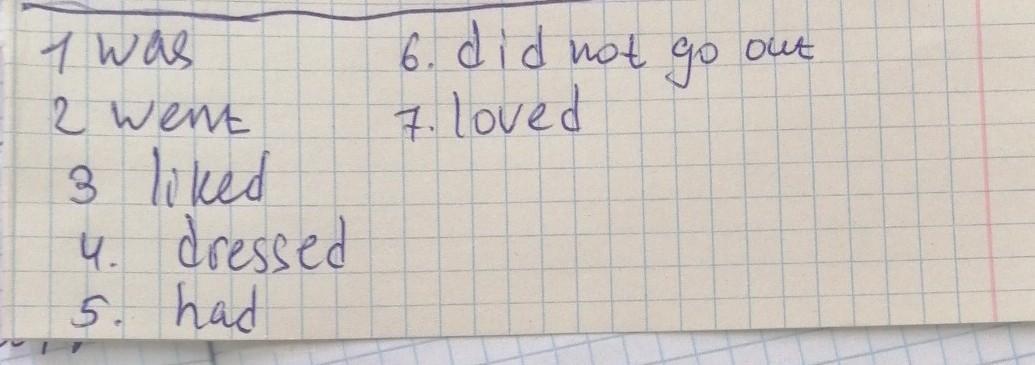 1 was
2 went
3 liked
4. dressed
5. had
6. did not go out
7. loved